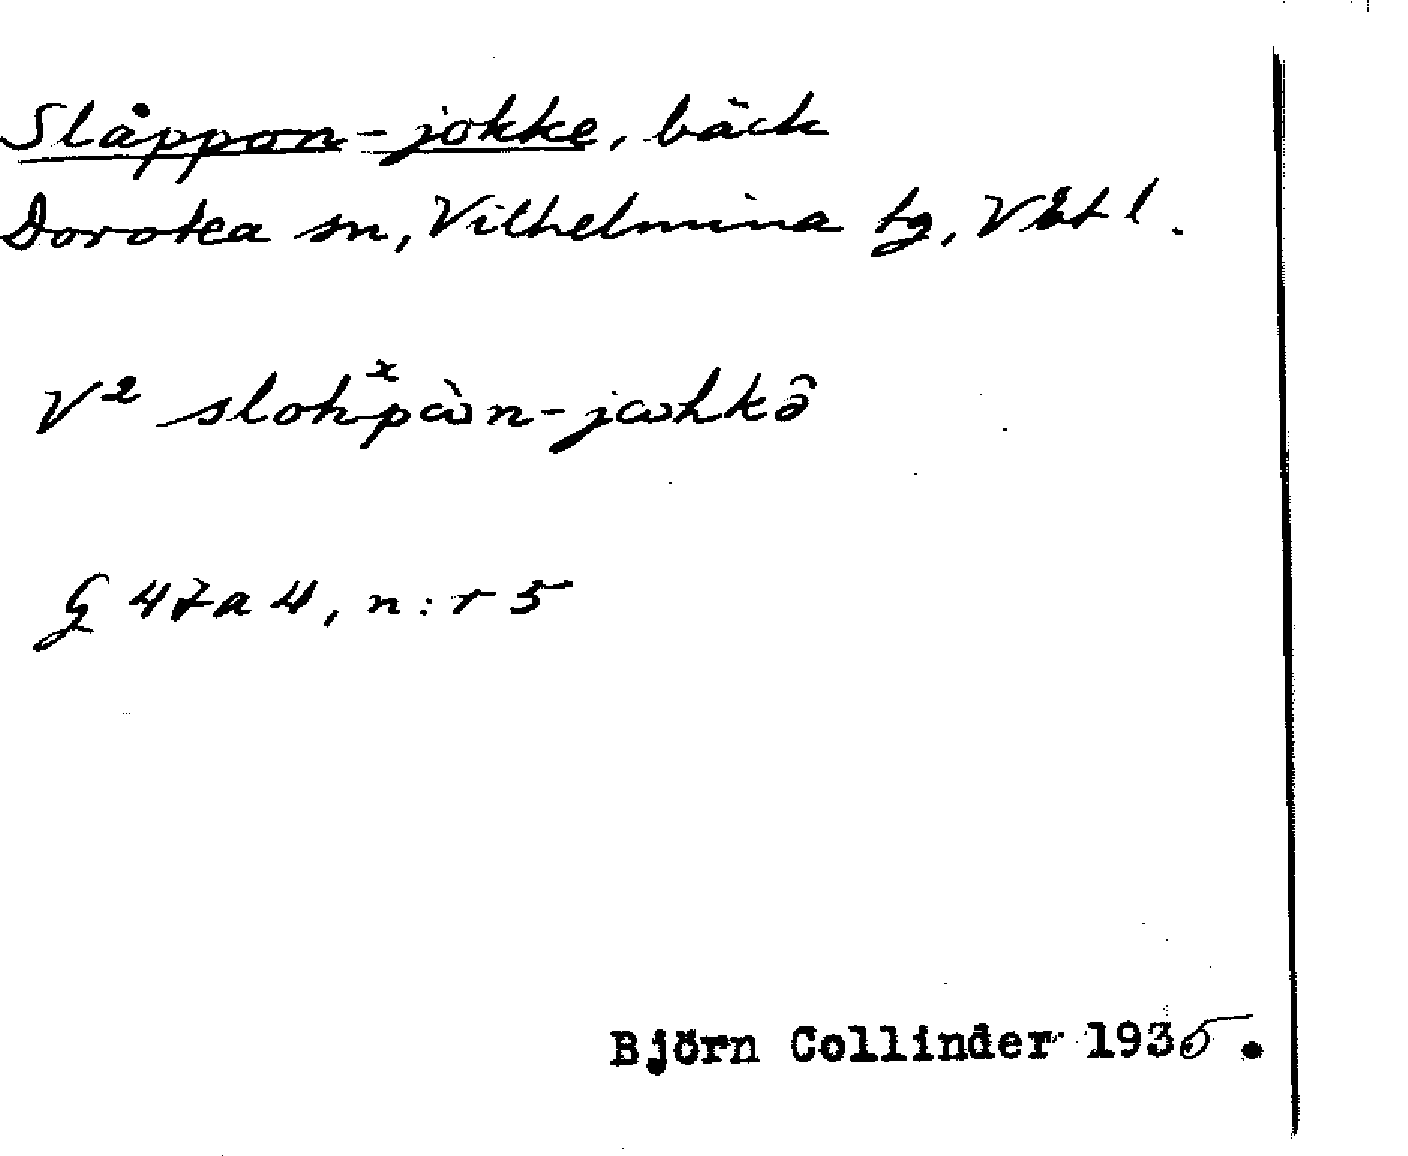 Slåppon-jokke, bäck
Dorotea sn, Vilhelmina tg, Vätl.
V² slohˣpὼn-jωhkə̂
G 47a4, n:r 5
Björn Collinder 1935.